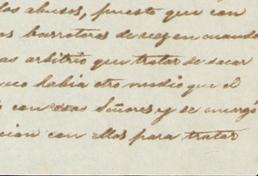 los abusos, puesto que con
os barreteros de vez en cuando
as arbitrio que tratar de sacar
uco había otro medio que el
con esos Señores y se encargó
cion con ellos para tratar